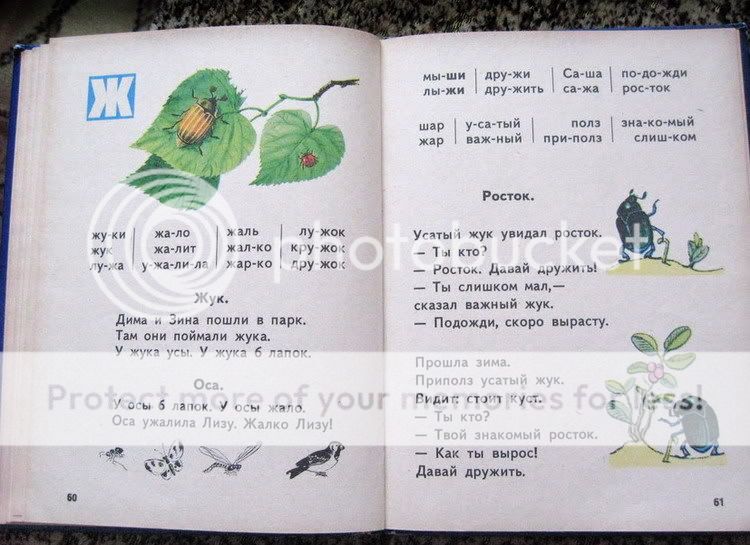 Ж
жу-ки жа-ло жаль лу-жок
жук жа-лит жал-ко кру-жок
лу-жа у-жа-ли-ла жар-ко дру-жок
Жук.
Дима и Зина пошли в парк.
Там они поймали жука.
У жука усы. У жука 6 лапок.
Оса.
У осы 6 лапок. У осы жало.
Оса ужалила Лизу. Жалко Лизу!
60
мы-ши дру-жи Са-ша по-до-жди
лы-жи дру-жить са-жа рос-ток
шар у-са-тый полз зна-ко-мый
жар важ-ный при-полз слиш-ком
Росток.
Усатый жук увидал росток.
— Ты кто?
— Росток. Давай дружить!
— Ты слишком мал,—
сказал важный жук.
— Подожди, скоро вырасту.
Прошла зима.
Приполз усатый жук.
Видит: стоит куст.
— Ты кто?
— Твой знакомый росток.
— Как ты вырос!
Давай дружить.
61
photobucket
Protect more of your memories for less!